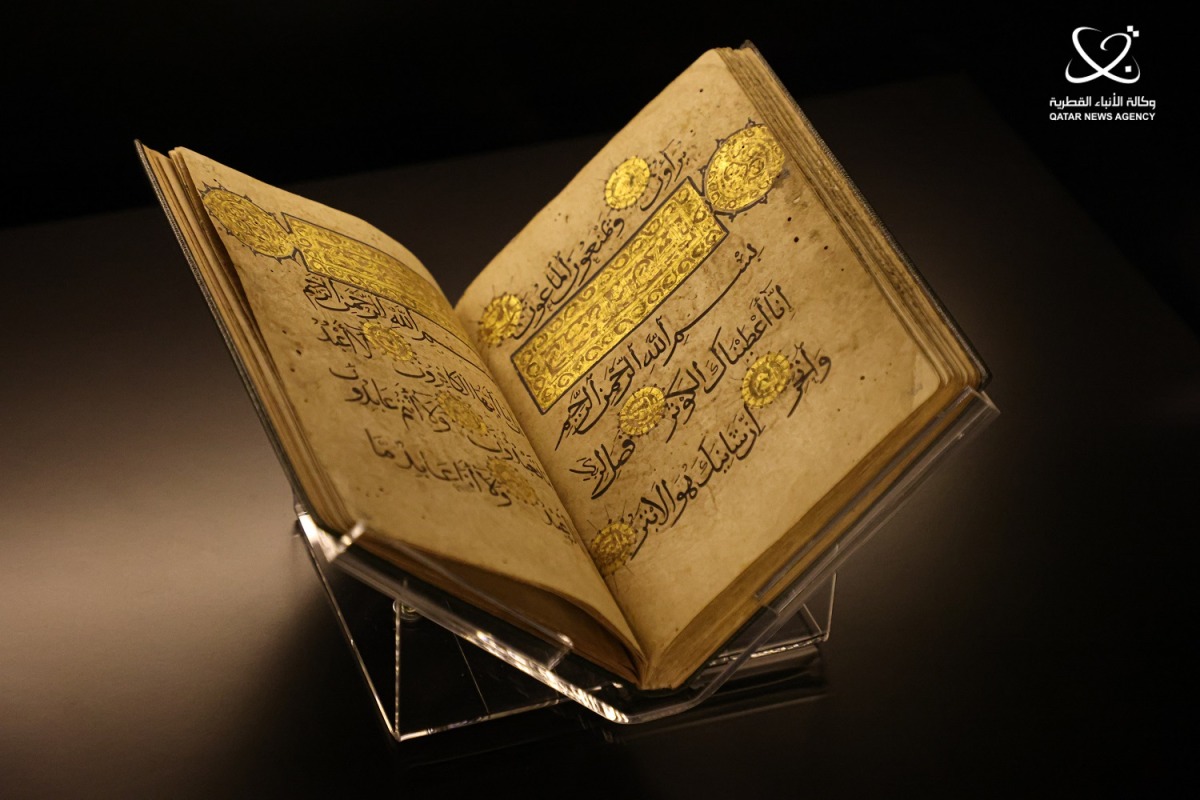 وكالة الأنباء القطرية
QATAR NEWS AGENCY
يراؤن ويمنعون الماعون
بسم الله الرحمن الرحيم
انا أعطيناك الكوثر فصل لربك
وانحر ان شانئك هو الابتر
بسم الله الرحمن الرحيم
أيها الكافرون لا أعبد
تعبدون ولا أنتم عابدون
أعبد ولا أنا عابد ما